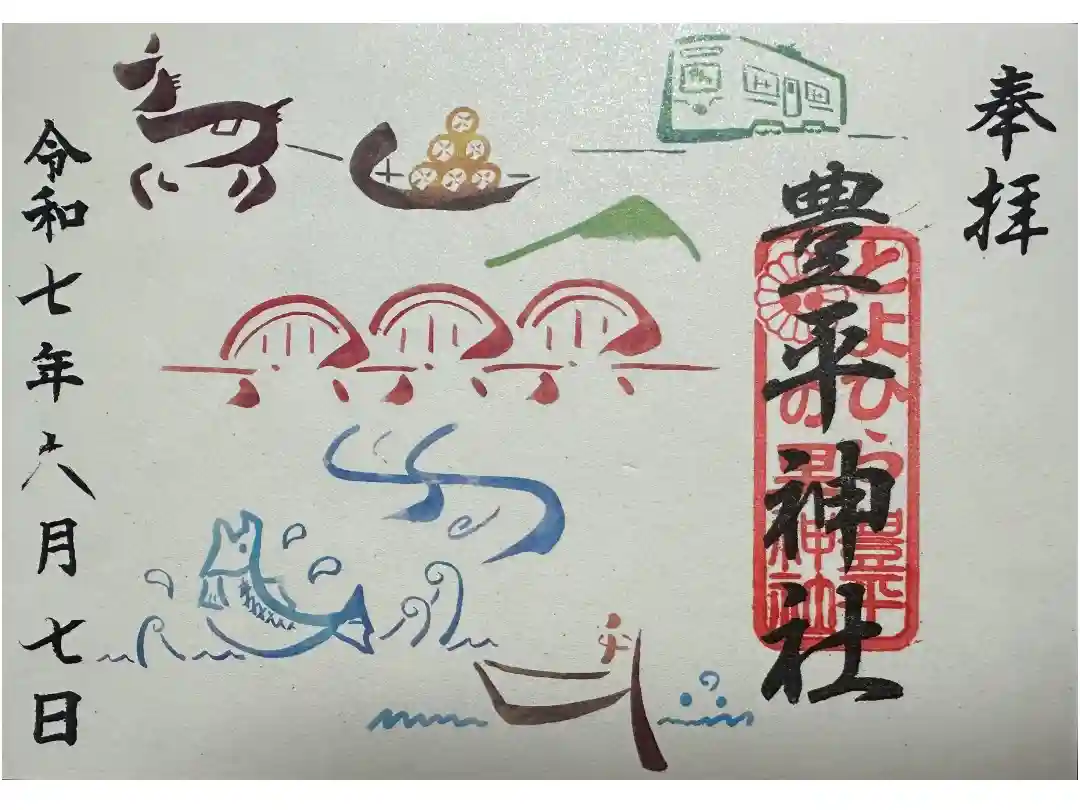 奉拝
豊平神社
とよひら 豊平
の 神社
令和七年六月七日